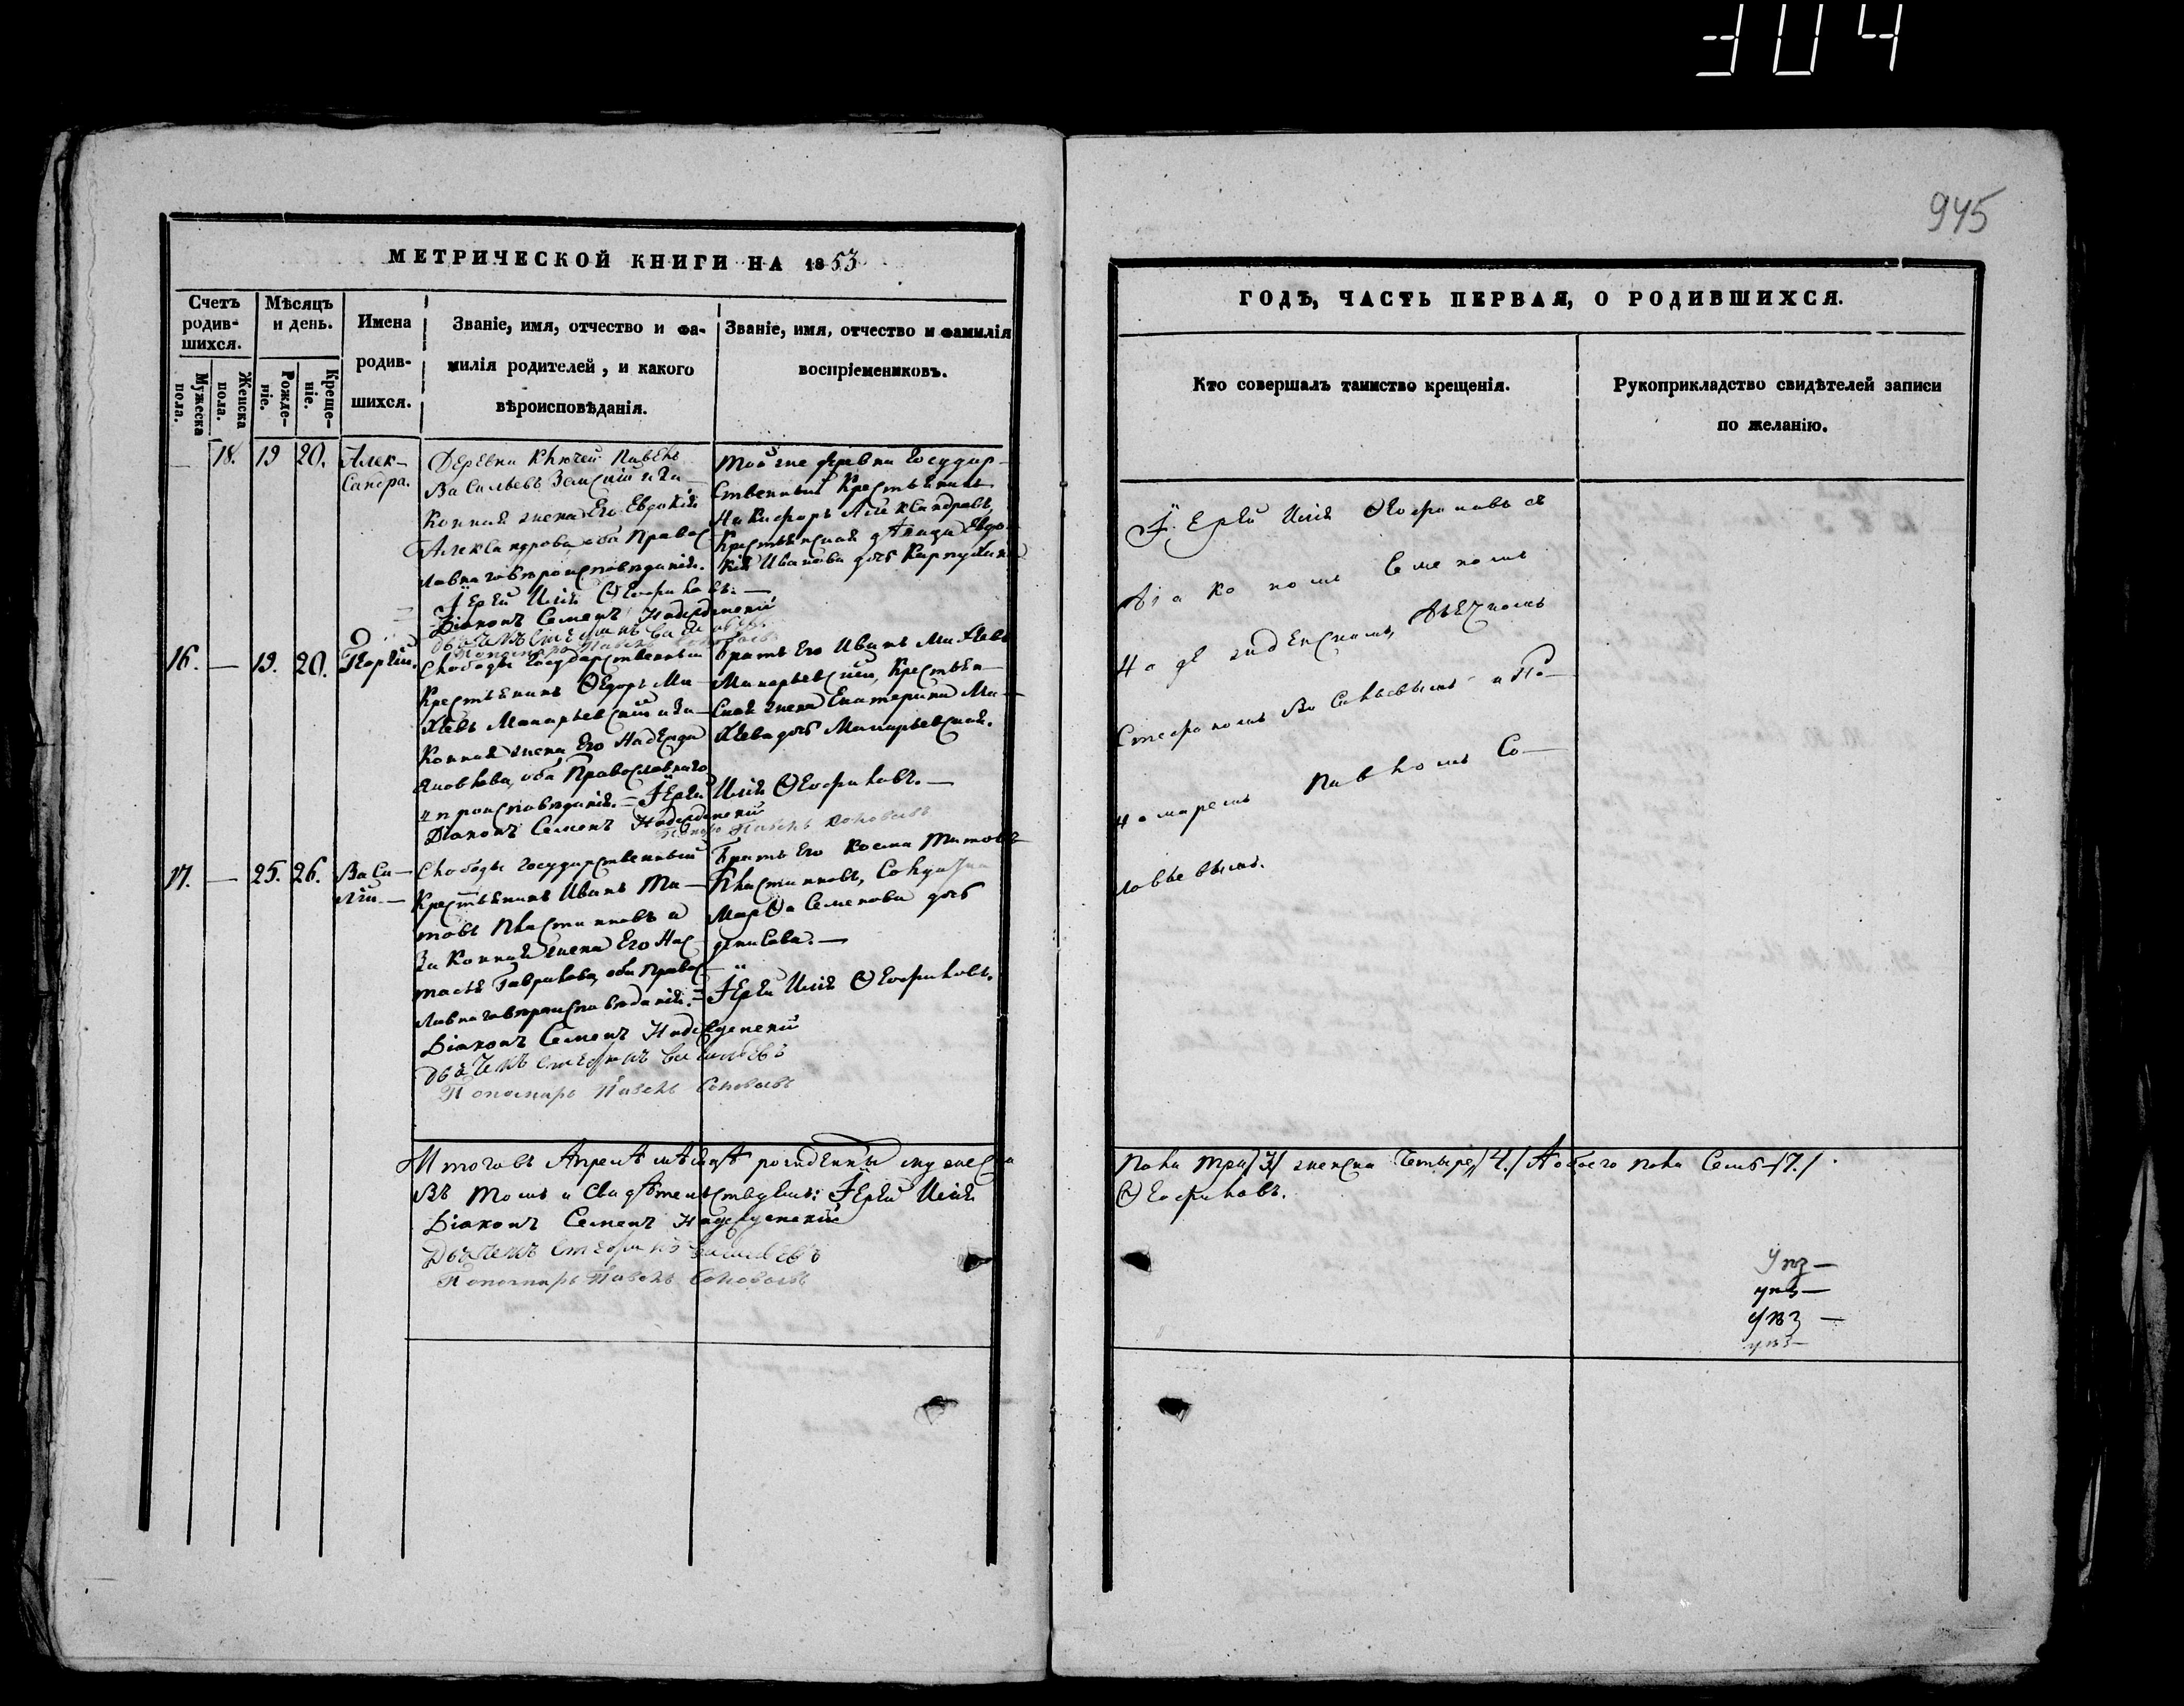 304
945
МЕТРИЧЕСКОЙ КНИГИ НА 1853
Счетъ родив-шихся.
Мѣсяцъ и день.
Имена родив-шихся.
Званіе, имя, отчество и фа-
милія родителей, и какого
вѣроисповѣданія.
Званіе, имя, отчество и фамилія
воспріемниковъ.
Мужеска пола.
Женска пола.
Рожде-ніе.
Креще-ніе.
— 18. 19 20. Алек-
сандра.
Деревни Ключей Павелъ
Васильевъ Земскій и За-
конная жена Его Евдокія
Александрова, оба Правос-
лавнаго вѣроисповѣданія.
Іерей Илія Ѳеофиловъ. —
Діаконъ Семенъ Надежденскій
Дьячекъ Стефанъ Васильевъ
Пономарь Павелъ
Той же деревни Государ-
ственный Крестьянинъ
Никифоръ Александровъ,
Крестьянская дѣвица Евдо-
кія Иванова дочь
16. — 19. 20. Георгій.
Слободы Государственный
Крестьянинъ Ѳедоръ Ми-
хѣевъ Макарьевскій и За-
конная жена Его Надежда
Яковлева, оба Православнаго
вѣроисповѣданія. = Іерей Илія Ѳеофиловъ. —
Діаконъ Семенъ Надежденскій
Братъ Его Иванъ Михѣевъ
Макарьевскій, Крестьян-
ская жена Екатерина Ми-
хѣева дочь Макарьевская.
17. — 25. 26. Васи-
лій. —
Слободы Государственный
Крестьянинъ Иванъ Ти-
товъ Пластининовъ и
Законная жена Его Нас-
тасія Гаврилова, оба Правос-
лавнаго вѣроисповѣданія. = Іерей Илія Ѳеофиловъ.
Діаконъ Семенъ Надежденскій
Дьячекъ Стефанъ Васильевъ
Пономарь Павелъ Соловьевъ
Братъ Его Косма Титовъ
Солдатка
Марѳа Семенова дочь
Денисова. —
Итого въ Апрелѣ мѣсяцѣ рожденны мужеска
Въ томъ и Свидѣтельствуемъ: Іерей Илія
Діаконъ Семенъ Надежденскій
Дьячекъ Стефанъ Васильевъ
Пономарь Павелъ Соловьевъ
ГОДѢ, ЧАСТЬ ПЕРВАЯ, О РОДИВШИХСЯ.
Кто совершалъ таинство крещенія.
Рукоприкладство свидѣтелей записи
по желанію.
Іерей Илія Ѳеофиловъ съ
Діакономъ Семеномъ
Надежденскимъ, Дьячкомъ
Стефаномъ Васильевымъ и По-
номаремъ Павломъ Со-
ловьевымъ.
пола три /3/ женска Четыре /4./ А обоего пола Семь /7./
Ѳеофиловъ.